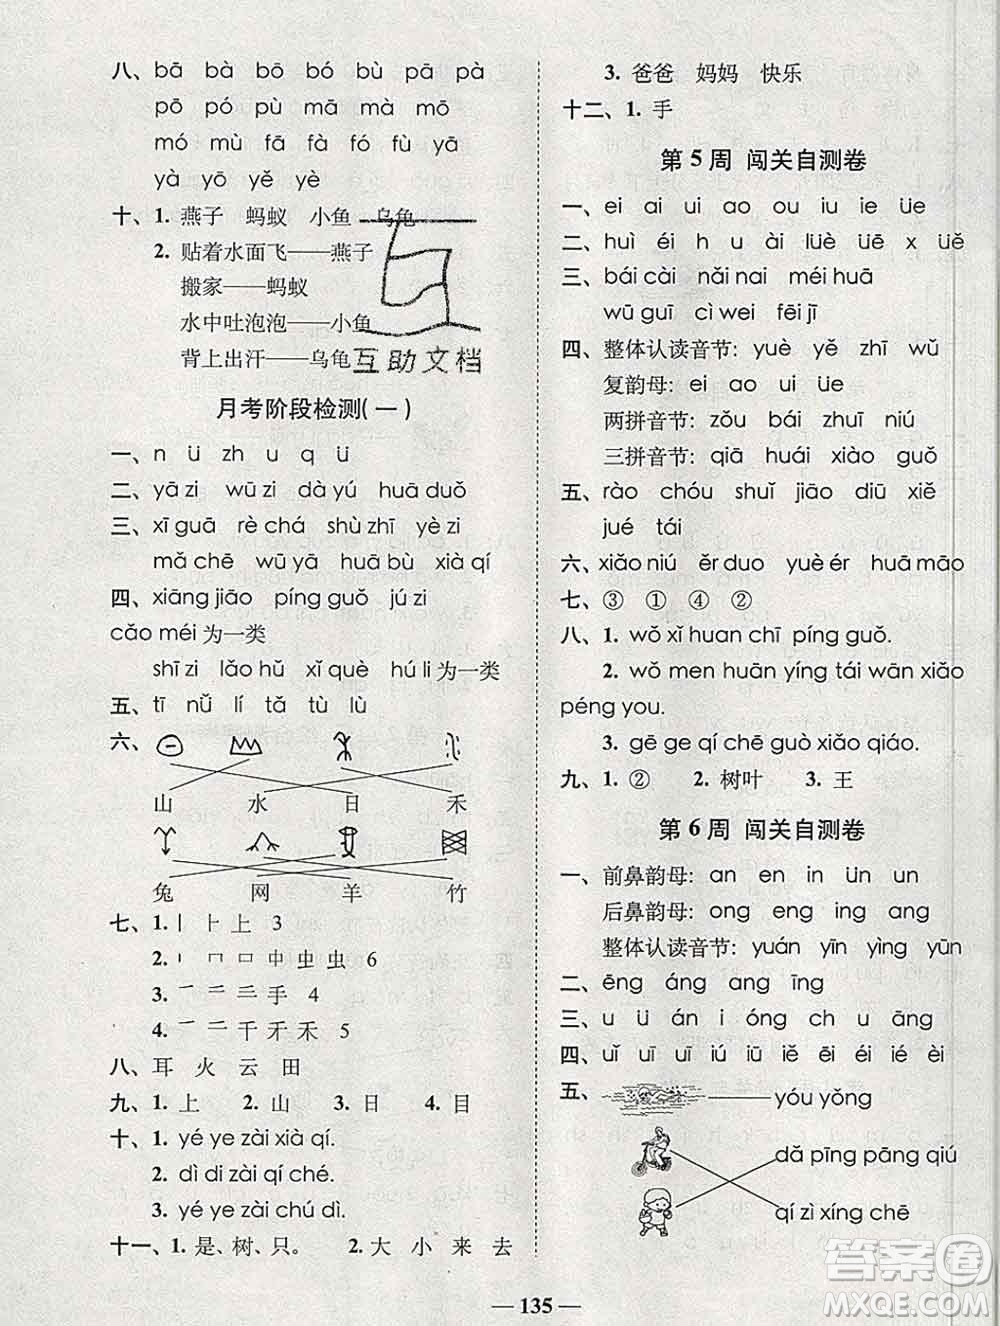 八、bā bà bó bù pā pà
pō pó pù mā mà mō
mó mù fā fà fó yā
yà yō yě yè
十、1. 燕子 蚂蚁 小鱼 乌龟
2. 贴着水面飞——燕子
搬家——蚂蚁
水中吐泡泡——小鱼
背上出汗——乌龟
互助文档
月考阶段检测(一)
一、n ü zh u q ü
二、yā zi wū zi dà yú huā duǒ
三、xī guā rè chá shù zhī yè zi
mǎ chē wū yā huā bù xià qí
四、xiāng jiāo píng guǒ jú zi
cǎo méi 为一类
shī zi lǎo hǔ xǐ què hú li 为一类
五、tī nǚ lí tǎ tù lù
六、
山 水 日 禾
兔 网 羊 竹
七、1. 丨 ⺊ 上 3
2. 丨 口 中 虫 虫 6
3. 一 二 三 手 4
4. 一 二 千 禾 禾 5
八、耳 火 云 田
九、1. 上 2. 山 3. 日 4. 目
十、1. yé ye zài xià qí.
2. dì di zài qí chē.
3. yé ye zài chú dì.
十一、1. 是、树、只。 2. 大 小 来 去
3. 爸爸 妈妈 快乐
十二、1. 手
第 5 周 闯关自测卷
一、ei ai ui ao ou iu ie üe
二、huì éi h u ài lüè üē x üě
三、bái cài nǎi nai méi huā
wū guī cì wei fēi jī
四、整体认读音节: yuè yě zhī wǔ
复韵母: ei ao ui üe
两拼音节: zǒu bái zhuī niú
三拼音节: qiā huái xiào guǒ
五、rào chóu shuǐ jiāo diū xiě
jué tái
六、xiǎo niú ěr duo yuè ér huā māo
七、③ ① ④ ②
八、1. wǒ xǐ huan chī píng guǒ.
2. wǒ men huān yíng tái wān xiǎo
péng you.
3. gē ge qí chē guò xiǎo qiáo.
九、1. ② 2. 树叶 3. 王
第 6 周 闯关自测卷
一、前鼻韵母: an en in ün un
后鼻韵母: ong eng ing ang
整体认读音节: yuán yīn yìng yūn
二、ēng áng ang īng
三、u ü án i óng ch u āng
四、uǐ uī uī iú iū iě iē ié èi
五、
yóu yǒng
dǎ pīng pāng qiú
qí zì xíng chē
135
答案圈
MXQE.COM